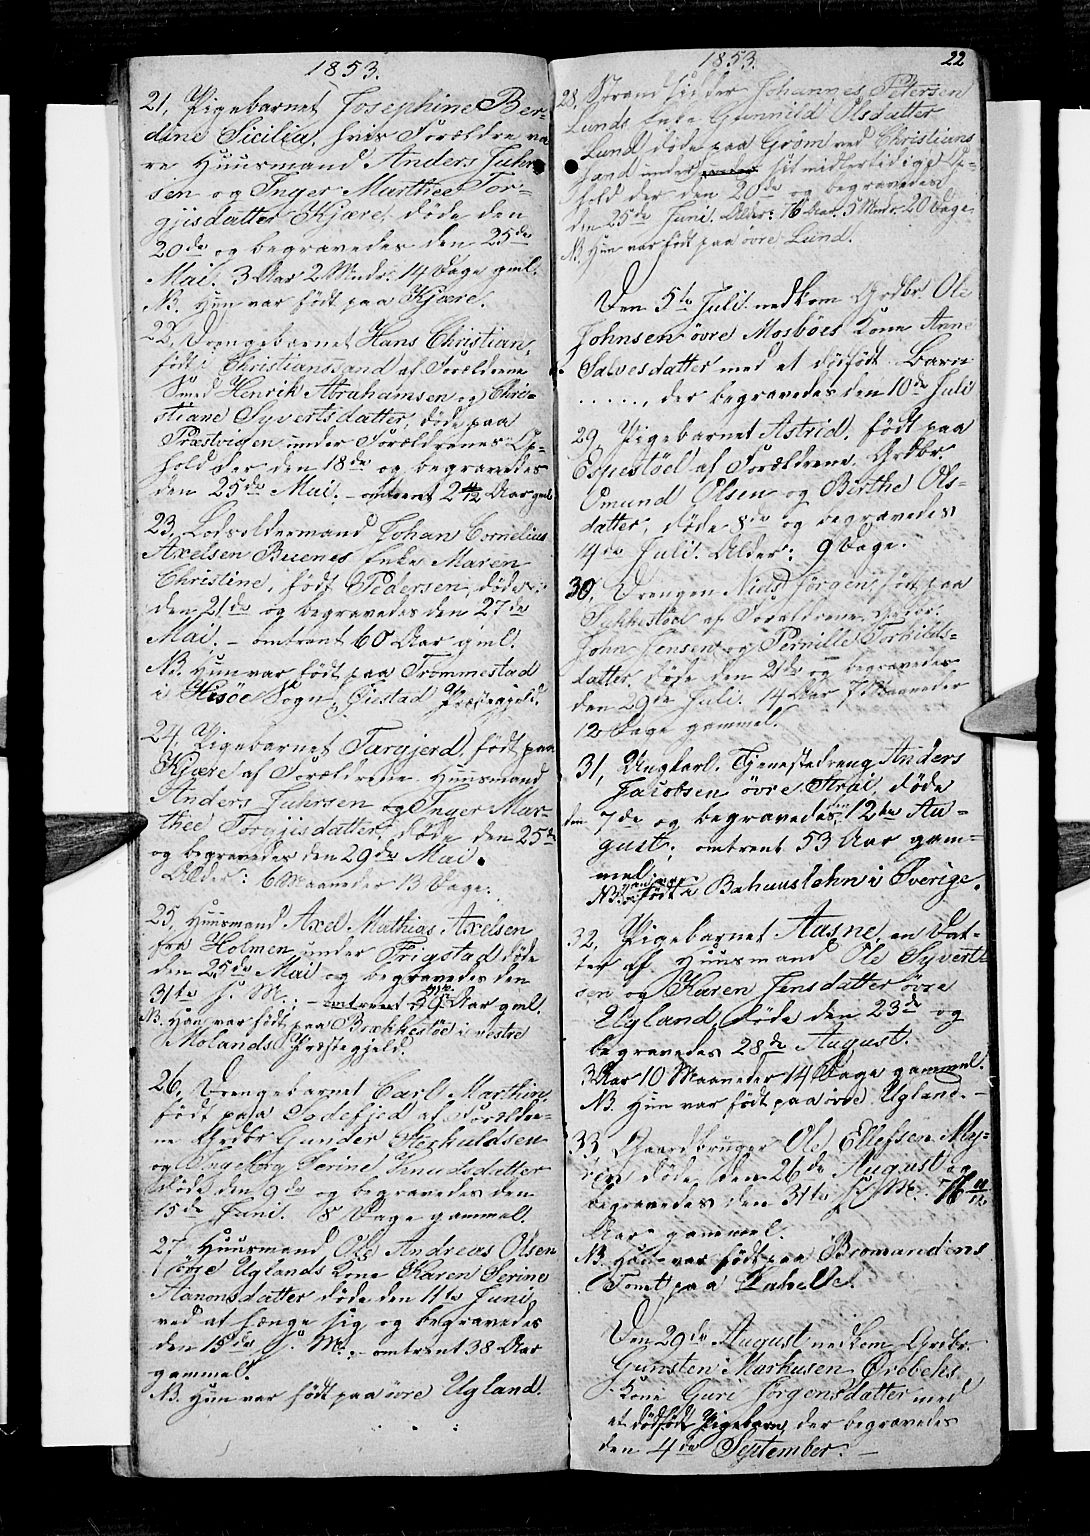 1853.
21, Pigebarnet Josephine Ber-
dine Sicilia, hvis Forældre va
re Huusmand Anders Fuhr-
sen og Inger Marthee Tor-
gjisdatter Kjære, døde den
20de og begravedes den 25de
Mai. 3 Aar 2 Mndr. 14 Dage gml.
NB. Hun var født paa Kjære.
22, Drengebarnet Hans Christian,
født i Christianssand af Forældrene
Smed Henrik Abrahamsen og Chris-
tiane Syvertsdatter, døde paa
Præstvigen under Forældrenes Op-
hold der den 18de og begravedes
den 25de Mai. - omtrent 2 4/12 Aar gml
23, Lodsoldermand Johan Cornelius
Axelsen Buenes Enke Maren
Christine, født Pedersen, døde
den 21de og begravedes den 27de
Mai. - omtrent 60 Aar gml.
NB. Hun var født paa Trommestad
i Hisöe Sogn, Øiestad Præstegjeld.
24, Pigebarnet Targjerd, født paa
Kjære af Forældrene Huusmand
Anders Fuhrsen og Inger Mar-
thee Torgjisdatter, døde den 25de
og begravedes den 29de Mai.
Alder: 6 Maaneder 13 Dage.
25, Huusmand Axel Mathias Axelsen
fra Holmen under Frigstad døde
den 25de Mai og begravedes den
31te s. M.; - omtrent Aar gml.
NB. Han var født paa Brækkestöe i vestre
Molands Præstegjeld.
26, Drengebarnet Carl Marthin
født paa af Forældre-
ne Grdbr Gunder Sterkuldsen
og Ingeborg Serine Knudsdatter
døde den 9de og begravedes den
15de Juni. 8 Dage gammel.
27, Huusmand Ole Andreas Olsen
øvre Uglands Kone Karen Serine
Aanonsdatter døde den 11te Juni
ved at hænge sig og begravedes
den 15de s. M. - omtrent 38 Aar
gammel.
NB. Hun var født paa øvre Ugland.
1853. 22
28, Strandsidder Johannes Petersen
Lunds Enke Gunnild Olsdatter
Lund døde paa Grøm ved Christians
sand under sit midlertidige Op-
hold der den 20de og begravedes
den 25de Juni. Alder: 76 Aar, 5 Mndr. 20 Dage
NB. Hun var født paa øvre Lund.
Den 5te Juli nedkom Grdbr. Ole
Johnsen øvre Mosböes Kone Anne
Salvesdatter med et dødfødt Barn
......, der begravedes den 10de Juli
29, Pigebarnet Astrid, født paa
Espestöel af Forældrene Grdbr.
Omund Olsen og Birthe Ols-
datter, døde 8de og begravedes
14de Juli. Alder: 9 Dage.
30, Drengen Nius Jörgen, født paa
af Forældrene Grdbr.
John Jensen og Pernille Torkilds-
datter døde den 21de og begravedes
den 29de Juli. 14 Aar 7 Maaneder
12 Dage gammel.
31, Ungkarl, Tjenestedreng Anders
Jacobsen øvre Strai, døde
den 7de og begravedes den 12te Au-
gust; omtrent 53 Aar gam-
mel.
NB. Han var født i Bahuuslehn i Sverige.
32, Pigebarnet Aasne, en Dat-
ter af Huusmand Ole Syvert-
sen og Karen Jensdatter øvre
Ugland, døde den 23de og
begravedes 28de August.
3 Aar 10 Maaneder 14 Dage gammel.
NB. Hun var født paa øvre Ugland. -
33, Gaardbruger Ole Ellefsen My-
ren døde den 26de August og
begravedes den 31te s. M. 76 11/12
Aar gammel.
NB. Han var født paa Bromandens
Tomt paa
Den 29de August nedkom Grdbr.
Gunsten Markusen Ørebeks
Kone Guri Jörgensdatter med
et dødfødt Pigebarn, der begravedes
den 4de September. -